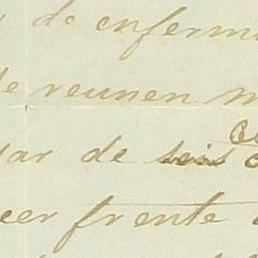 de enfermi
de reunen m
ar de seis
cer frente